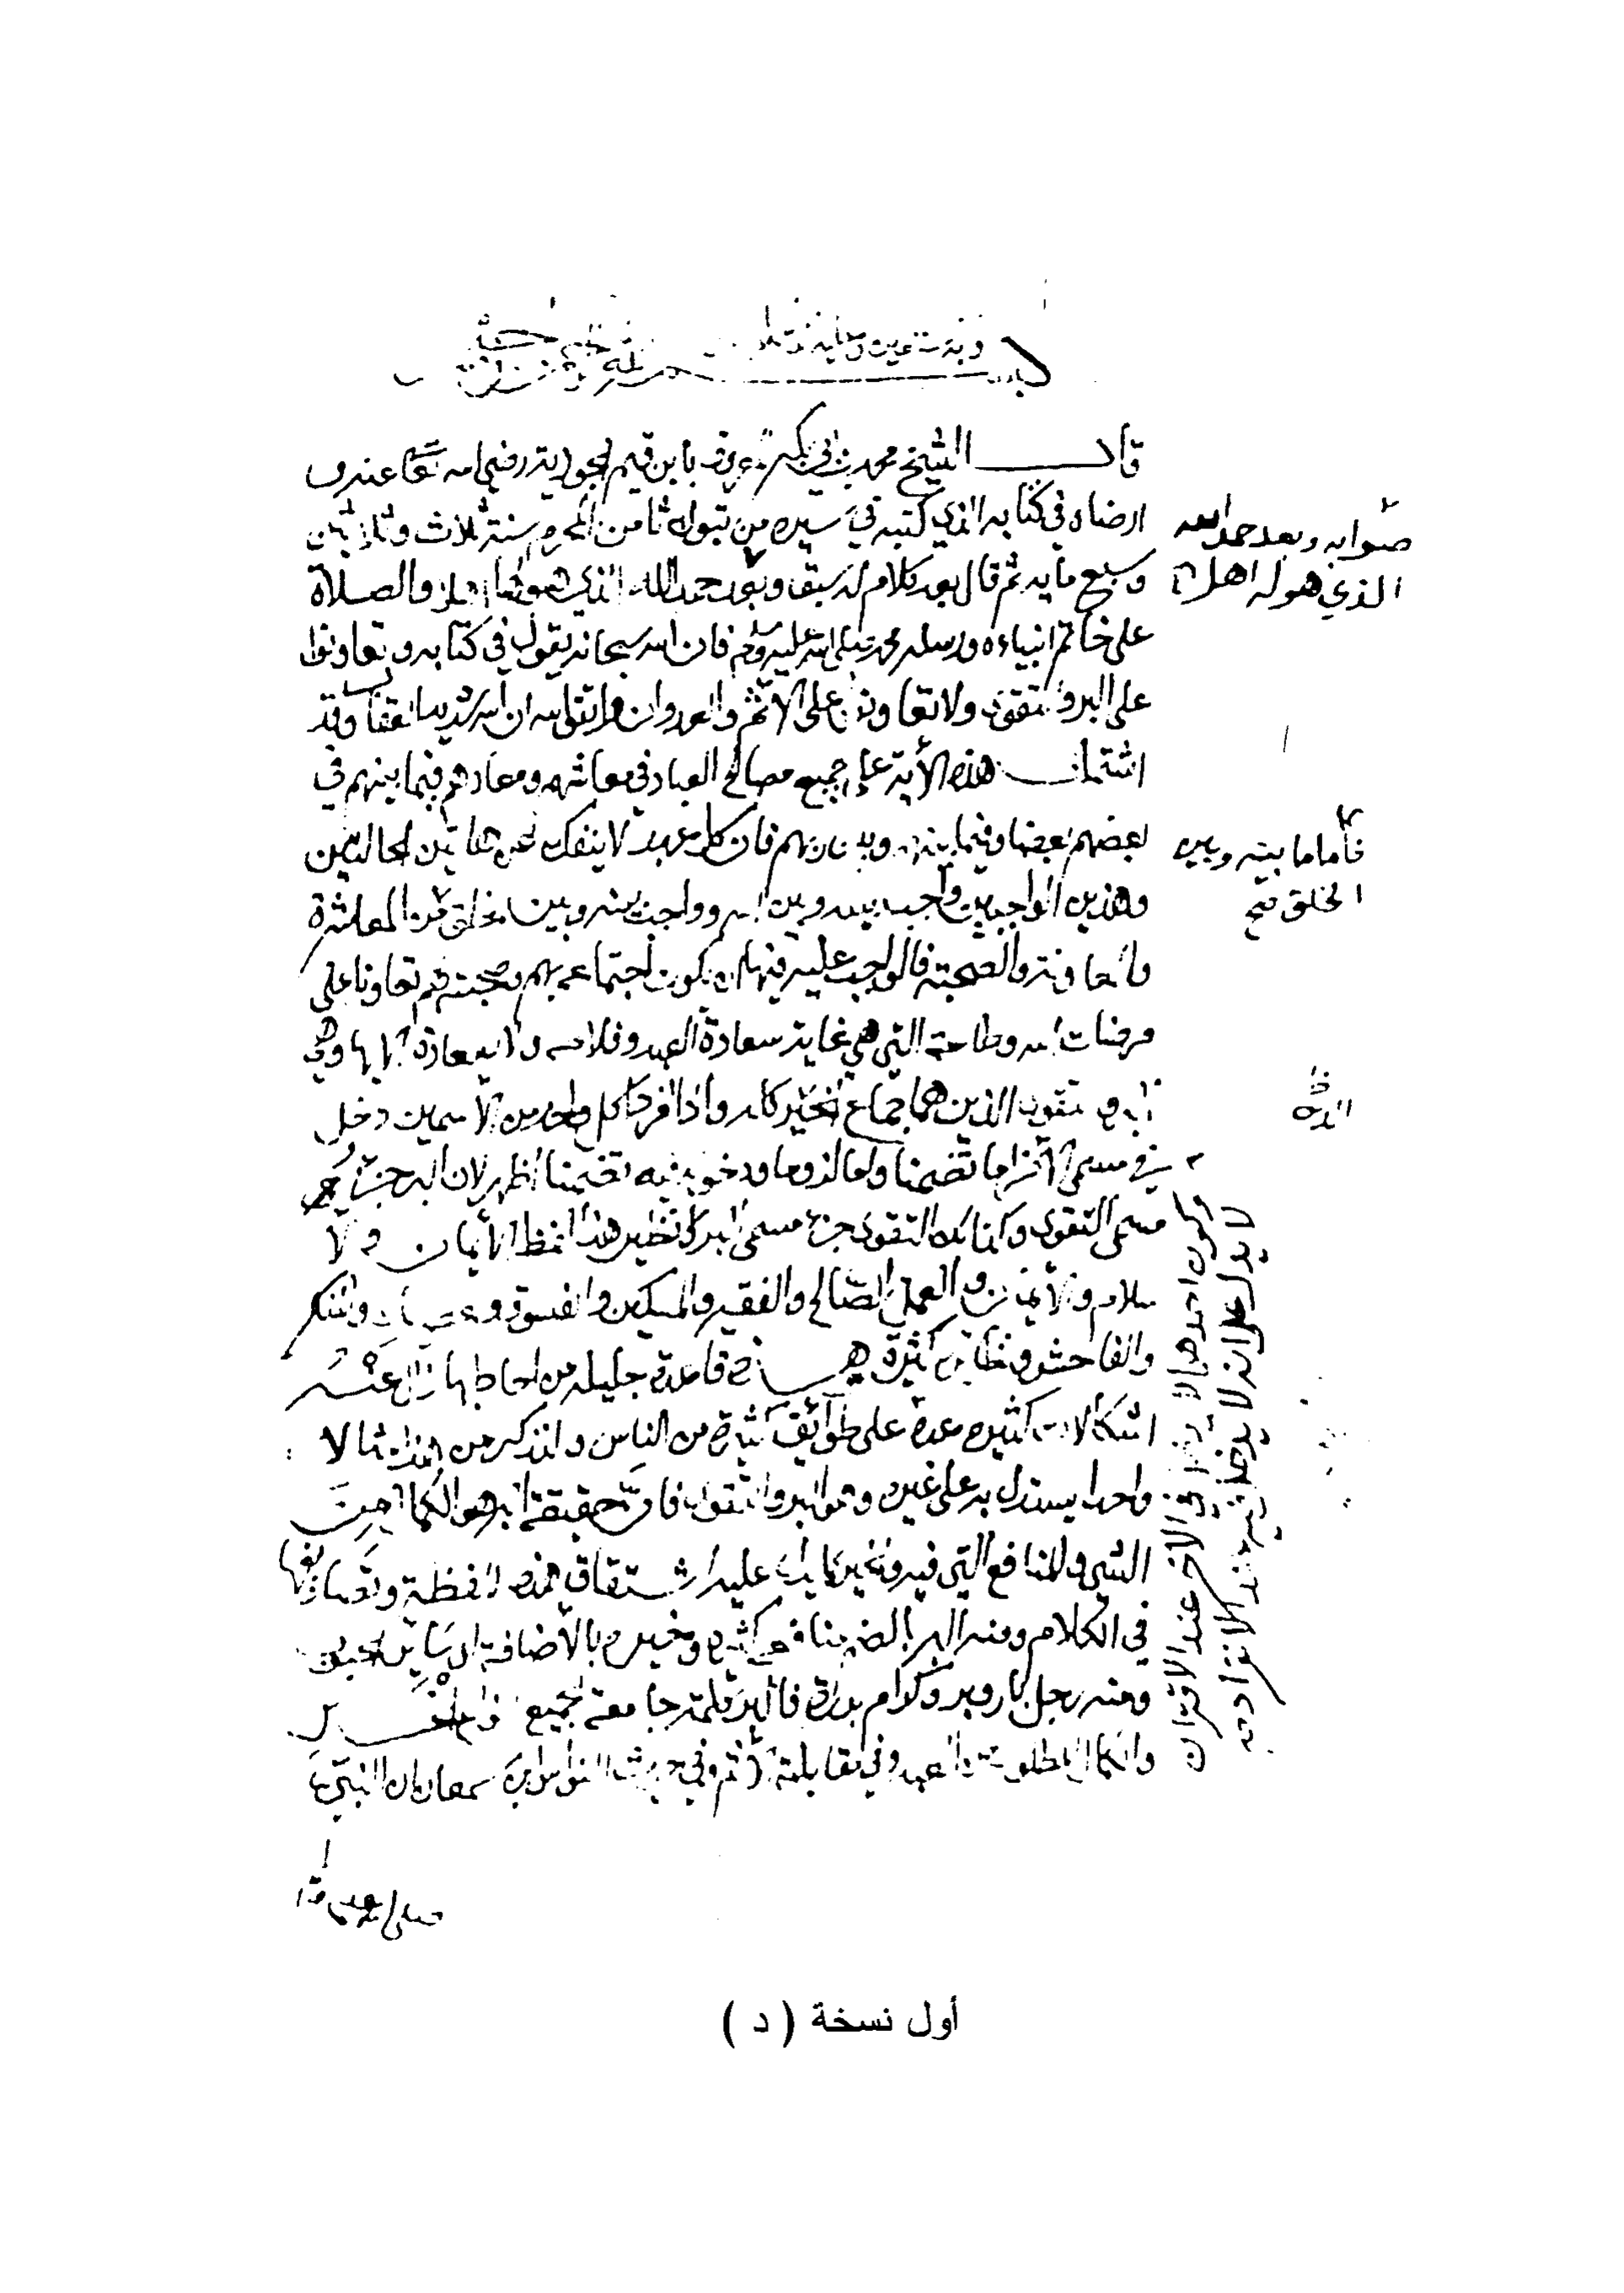 وبه نستعين وعليه
قال الشيخ محمد بن أبي بكر عرف بابن قيم الجوزية رضي الله تعالى عنه و
ارضاه في كتابه الذي كتبه في سيره من تبوك ثامن المحرم سنة ثلاث وثلاثين
وسبع مايه ثم قال بعد كلام له سبق وبعد حمد الله الذي هو لها اهل والصلاة
على خاتم انبياءه ورسله محمد صلى الله عليه وسلم فان الله سبحانه يقول في كتابه وتعاونوا
على البر والتقوى ولا تعاونوا على الاثم والعدوان واتقوا الله ان الله شديد العقاب وقد
اشتملت هذه الأية على جميع مصالح العباد في معاشهم ومعادهم فيما بينهم في
بعضهم بعضا وفيما بينهم وبين ربهم فان كل عبد لا ينفك عن هاتين الحالتين
وهذين الواجبين واجب بينه وبين الله وواجب بينه وبين الخلق من المعاشرة
والمعاونة والصحبة فالواجب عليه فيهم ان يكون اجتماعه بهم وصحبته لهم تعاونا على
مرضات الله وطاعته التي هي غاية سعادة العبد وفلاحه ولا سعادة له الا بها وهي
البر والتقوى الذين هما جماع الخير كله واذا افرد كل واحد من الاسمين دخل
في مسمى الاخر اما تضمنا واما لزوما ودخوله فيه تضمنا اظهر لان البر جزء
مسمى التقوى وكذلك التقوى جزء مسمى البر ونظير هذا لفظ الايمان والا
سلام والأيمان والعمل الصالح والفقير والمسكين والفسوق والعصيان والمنكر
والفاحشة ونظايره كثيرة وهذه قاعدة جليلة من احاط بها زال عنه
اشكالات كثيرة على طوائف كثيرة من الناس ولنذكر من هذا مثالا
واحدا يستدل به على غيره وهو البر والتقوى فان حقيقة البر هو الكمال من
الشي والمنافع التي فيه والخير كما يدل عليه اشتقاق هذه اللفظة وتصاريفها
في الكلام ومنه البر بالضم لمنافعه كثيرة وخيره بالأضافة الى سائر الحبوب
ومنه رجل بار وبر وكرام بررة فالبر كلمة جامعة لجميع
والكمال المطلوب من العبد وفي مقابلته الاثم وفي حديث النواس بن سمعان ان النبي
صلى الله عليه
صوابه وبعد حمد الله
الذي هو له اهل
فأما ما بينه وبين
الخلق صح
وكون احدهما لا يدخل في الاخر عند الاقتران
لا يدل على انه لا يدخل فيه عند الانفراد
أول نسخة ( د )